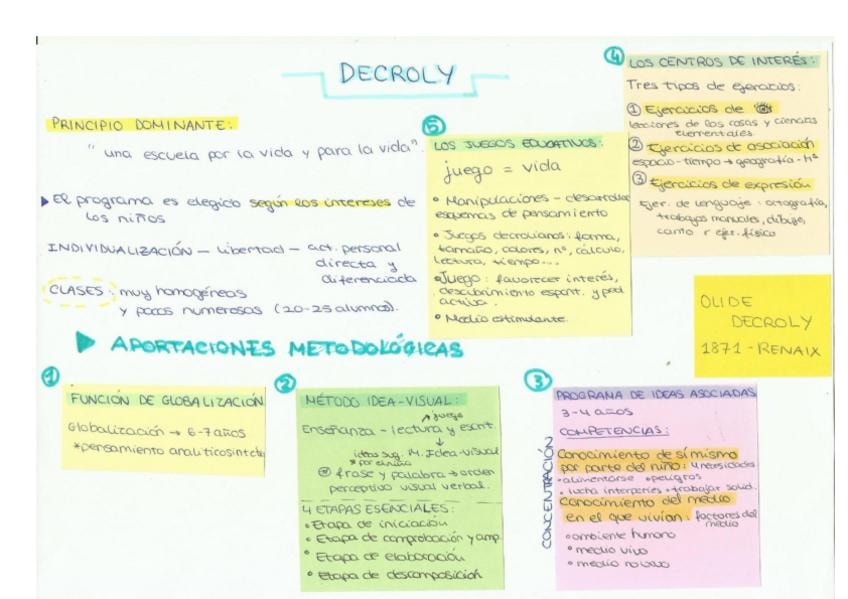 DECROLY
PRINCIPIO DOMINANTE:
"una escuela por la vida y para la vida".
El programa es elegido según los intereses de
los niños
INDIVIDUALIZACIÓN — libertad — act. personal
directa y
diferenciada
CLASES: muy homogéneas
y pocos numerosas (20-25 alumnos).
APORTACIONES METODOLÓGICAS
1
FUNCIÓN DE GLOBALIZACIÓN
Globalización → 6-7 años
*pensamiento analiticosintctc
2
MÉTODO IDEA-VISUAL:
juego
Enseñanza - lectura y escrit.
ideas sug. M. Idea-visual
* por el niño
frase y palabra → orden
perceptivo visual verbal.
4 ETAPAS ESENCIALES:
• Etapa de iniciación
• Etapa de comprobación y amp.
• Etapa de elaboración
• Etapa de descomposición
3
PROGRAMA DE IDEAS ASOCIADAS
3-4 años
COMPETENCIAS:
CONCENTRACIÓN
Conocimiento de sí mismo
por parte del niño: 4 necesidades
• alimentarse • peligros
• lucha intemperies • trabajar solid.
Conocimiento del medio
en el que vivían: factores del
medio
• ambiente humano
• medio vivo
• medio no vivo
4
LOS CENTROS DE INTERÉS:
Tres tipos de ejercicios:
1 Ejercicios de
lecciones de las cosas y ciencias
elementales.
2 Ejercicios de asociación
espacio-tiempo → geografía - hª
3 Ejercicios de expresión
Ejer. de lenguaje: ortografía,
trabajos manuales, dibujo,
canto y ejer. físico
5
LOS JUEGOS EDUCATIVOS:
juego = vida
• Manipulaciones - desarrollar
esquemas de pensamiento
• Juegos decrolianos: forma,
tamaño, colores, nº, cálculo,
lectura, tiempo...
• Juego: favorecer interés,
descubrimiento espont. y ped.
activa.
• Medio estimulante.
OLIDE
DECROLY
1871 - RENAIX